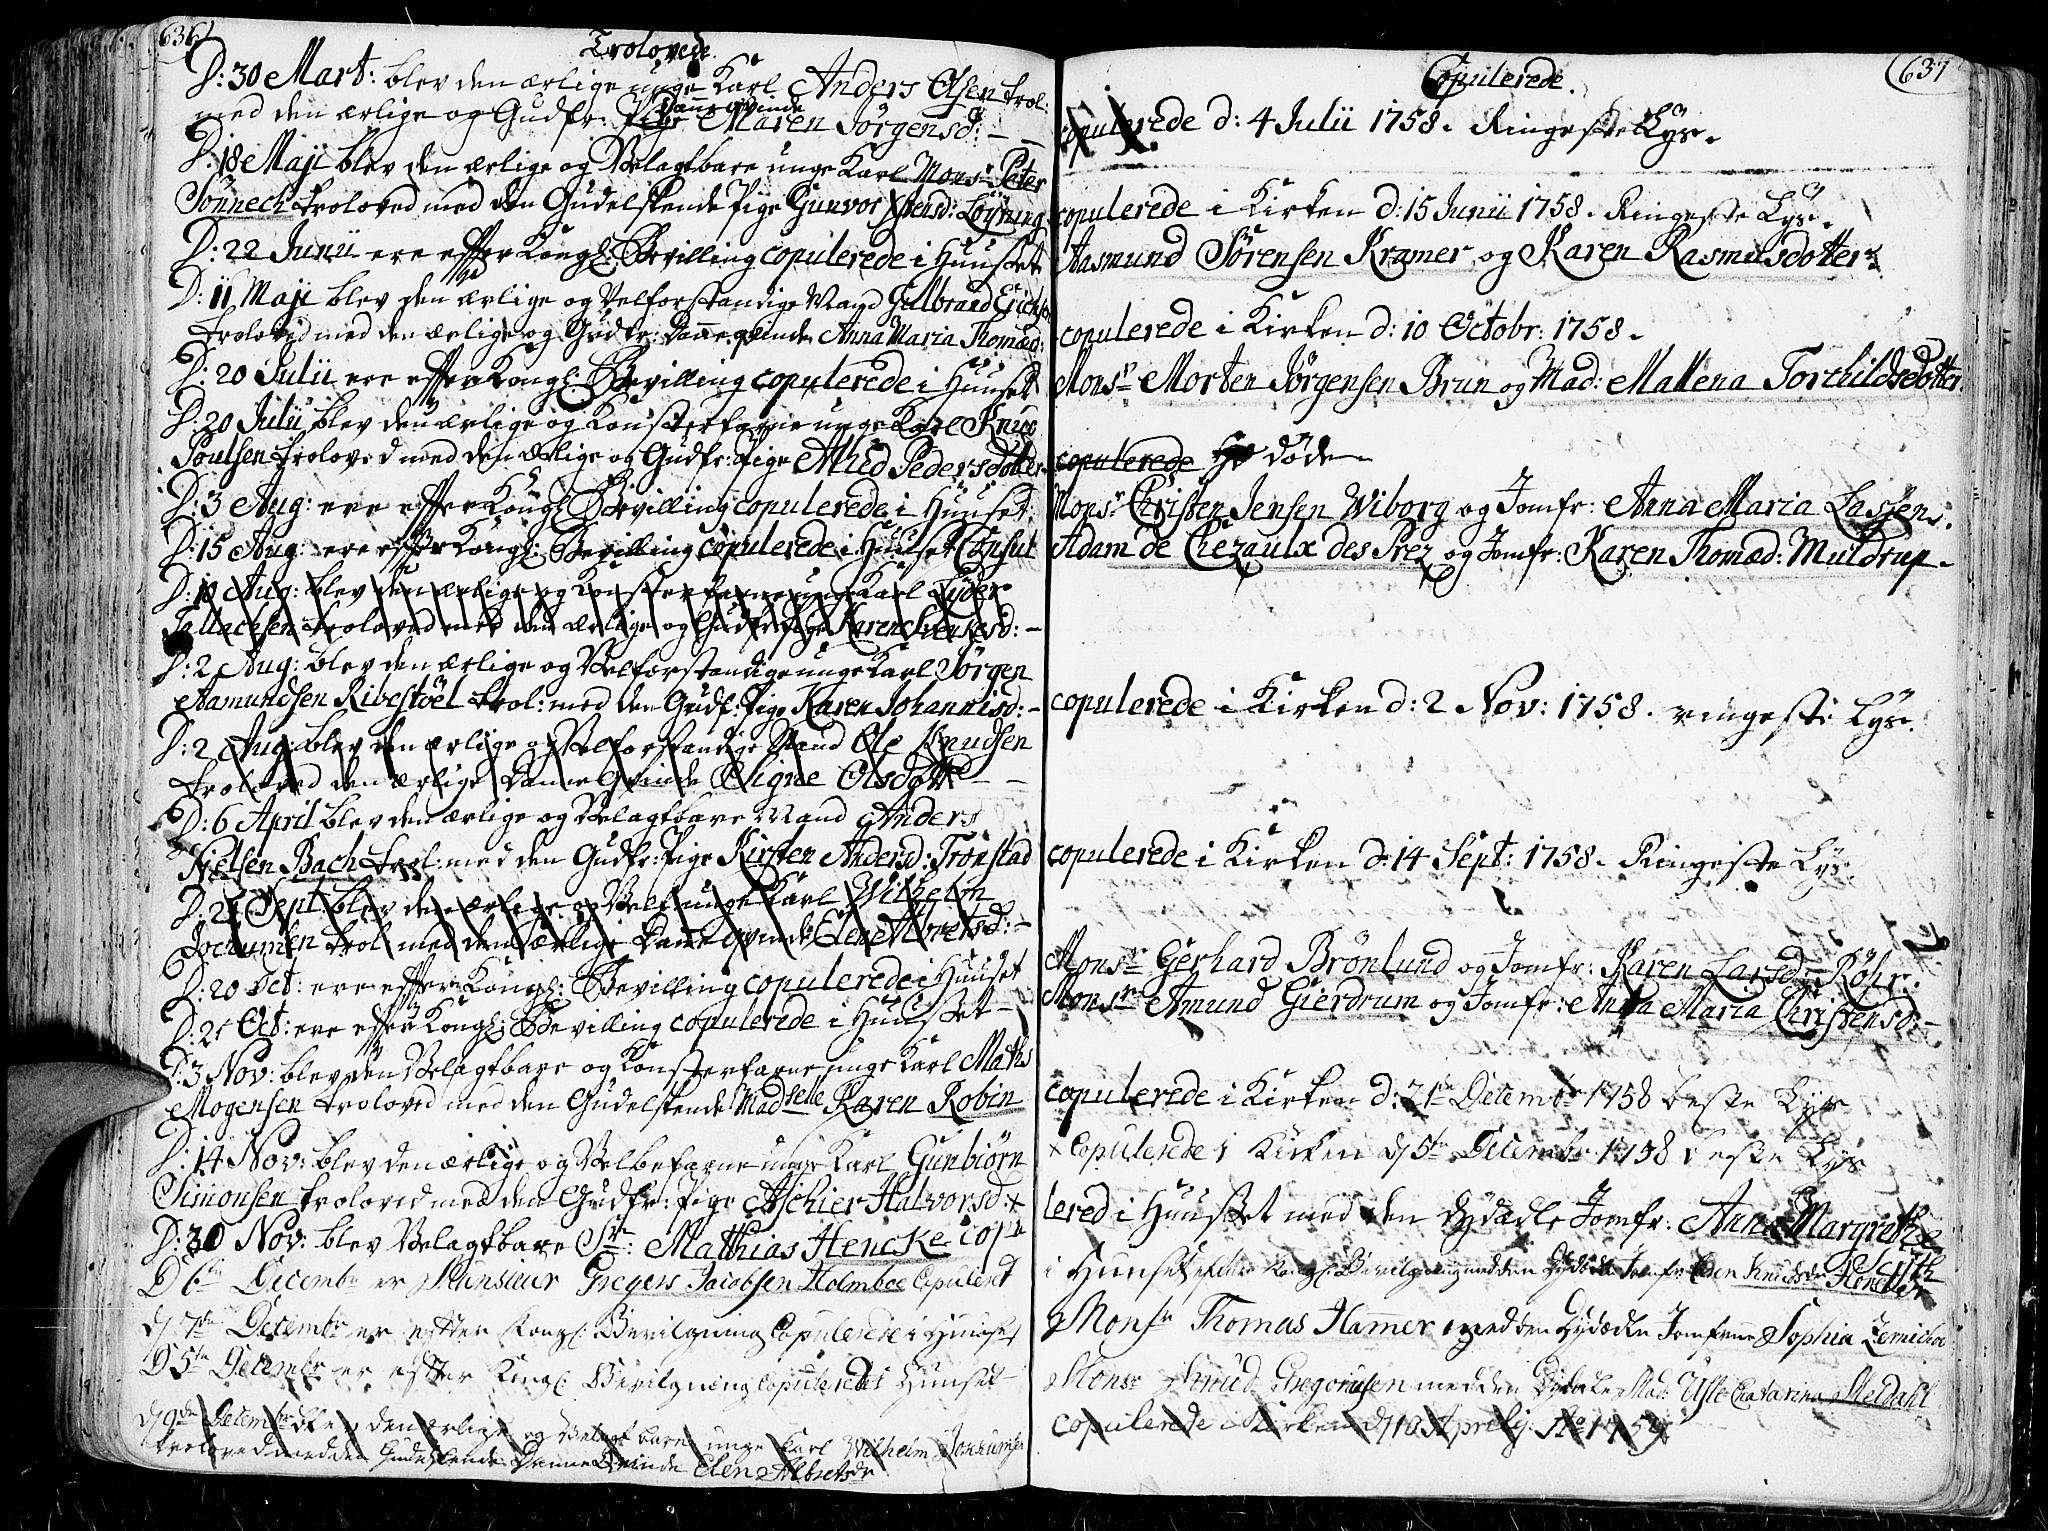 636
Trolovede
D: 30 Mart: blev den ærlige unge Karl Anders Olsen trol:
Danneqvinde
med den ærlige og Gudfr: Pige Maren Jörgensd: -
D: 18 Maji blev den ærlige og Velagtbare unge Karl Monsr Peter
Tönnech troloved med den Gudelskende Pige Gunvor Löyning
D: 22 Junii ere efter Kongl: Bevilling copulerede i Huuset
D: 11 Maji blev den ærlige og Velforstandige Mand Gulbrand Erichs:
troloved med den ærlige og Gudfr: Danneqvinde Anna Maria Thomæd:
D: 20 Julii ere efter Kongl: Bevilling copulerede i Huuset
D: 20 Julii blev den ærlige og Konsterfarne unge Karl Knud
Poulsen troloved med den ærlige og Gudfr: Pige Alhed Pedersdotter
D: 3 Aug: ere efter Kongl: Bevilling copulerede i Huuset
D: 15 Aug: ere efter Kongl: Bevilling copulerede i Huuset Consul
D: 10 Aug: blev den ærlige og Konsterfarne unge Karl Lyder
troloved med den ærlige og Gudfr: Pige Karen
D: 2 Aug: blev den ærlige og Velforstandige unge Karl Jörgen
Aamundsen Ribestöel trol: med den Gudf: Pige Karen Johannisd: -
D: 2 Aug: blev den ærlige og Velforstandige Mand Ole Knudsen
troloved den ærlige Danneqvinde Signe Olsdotter - -
D: 6 April blev den ærlige og Velagtbare Mand Anders
Nielsen Bach trol: med den Gudfr: Pige Kirsten Andersd: Tronstad
D: 21 Sept blev den ærlige og Velf: unge Karl Wilhelm
Jochumsen trol med den ærlige Danneqvinde Elen Albretsd: -
D: 20 Oct: ere efter Kongl: Bevilling copulerede i Huuset
D: 21 Oct: ere efter Kongl: Bevilling copulerede i Huuset -
D: 3 Nov: blev den Velagtbare og Konsterfarne unge Karl Maths
Mogensen troloved med den Gudelskende Madselle Karen Robin
D: 14 Nov: blev den ærlige og Velbefarne unge Karl Gunbiörn
Simonsen troloved med den Gudfr: Pige Aschier Halvorsd: +
D: 30 Nov: blev Velagtbare Sr: Matthias Hencke copu
D 6te Decembr er Munsieur Gregers Jacobsen Holmboe Copulerit
d 7de Decembr er efter Kongl: Bevilgning Copulerede i Huuset
D 5te Decembr er efter Kongl: Bevilgning Copulerede i Huuset -
d 9de Decembr blev den ærlige og Velagtbare unge Karl Wilhelm Jokkumsen
troloved med den Gudelskende Danne Qvinde Elen Albretsdr
637
Copulerede.
copulerede d: 4 Julii 1758. Ringeste Lys.
copulerede i Kirken d: 15 Junii 1758. Ringeste Lys.
Aasmund Sörensen Kramer og Karen Rasmusdotter
copulerede i Kirken d: 10 Octobr: 1758.
Monsr Morten Jörgensen Brun og Mad: Mallena Torchildsdotter.
copulerede döde
Monsr Christen Jensen Wiborg og Jomfr: Anna Maria Lassen.
Adam de Chezaulx des Prez og Jomfr: Karen Thomæd: Muldrup.
copulerede i Kirken d: 2 Nov: 1758. ringeste Lys.
copulerede i Kirken d: 14 Sept: 1758. Ringeste Lys.
Monsr Gerhard Brönlund og Jomfr: Karen Larsd: Röhr.
Monsr Amund Gierdrum og Jomfr: Anna Maria Christensd: -
copulerede i Kirken d: 21de Decembr 1758 beste Lys
+ Copulerede i Kirken d 5te Decembr 1758 beste Lys
lered i Huuset med den dydædle Jomfr: Anna Margrethe
i Huuset efter Kongl: Bevilgning med den Dydædle Jomfr Elen Knudsdr
Monsr Thomas Hamer med den Dydædle Jomfrue Sophia Lemicka
Monsr Knud Gregoriusen med den Dydædle Mad: Ulle Chatarina Meldahl
copulerede i Kirken d 18 Aprilij Ao 1759